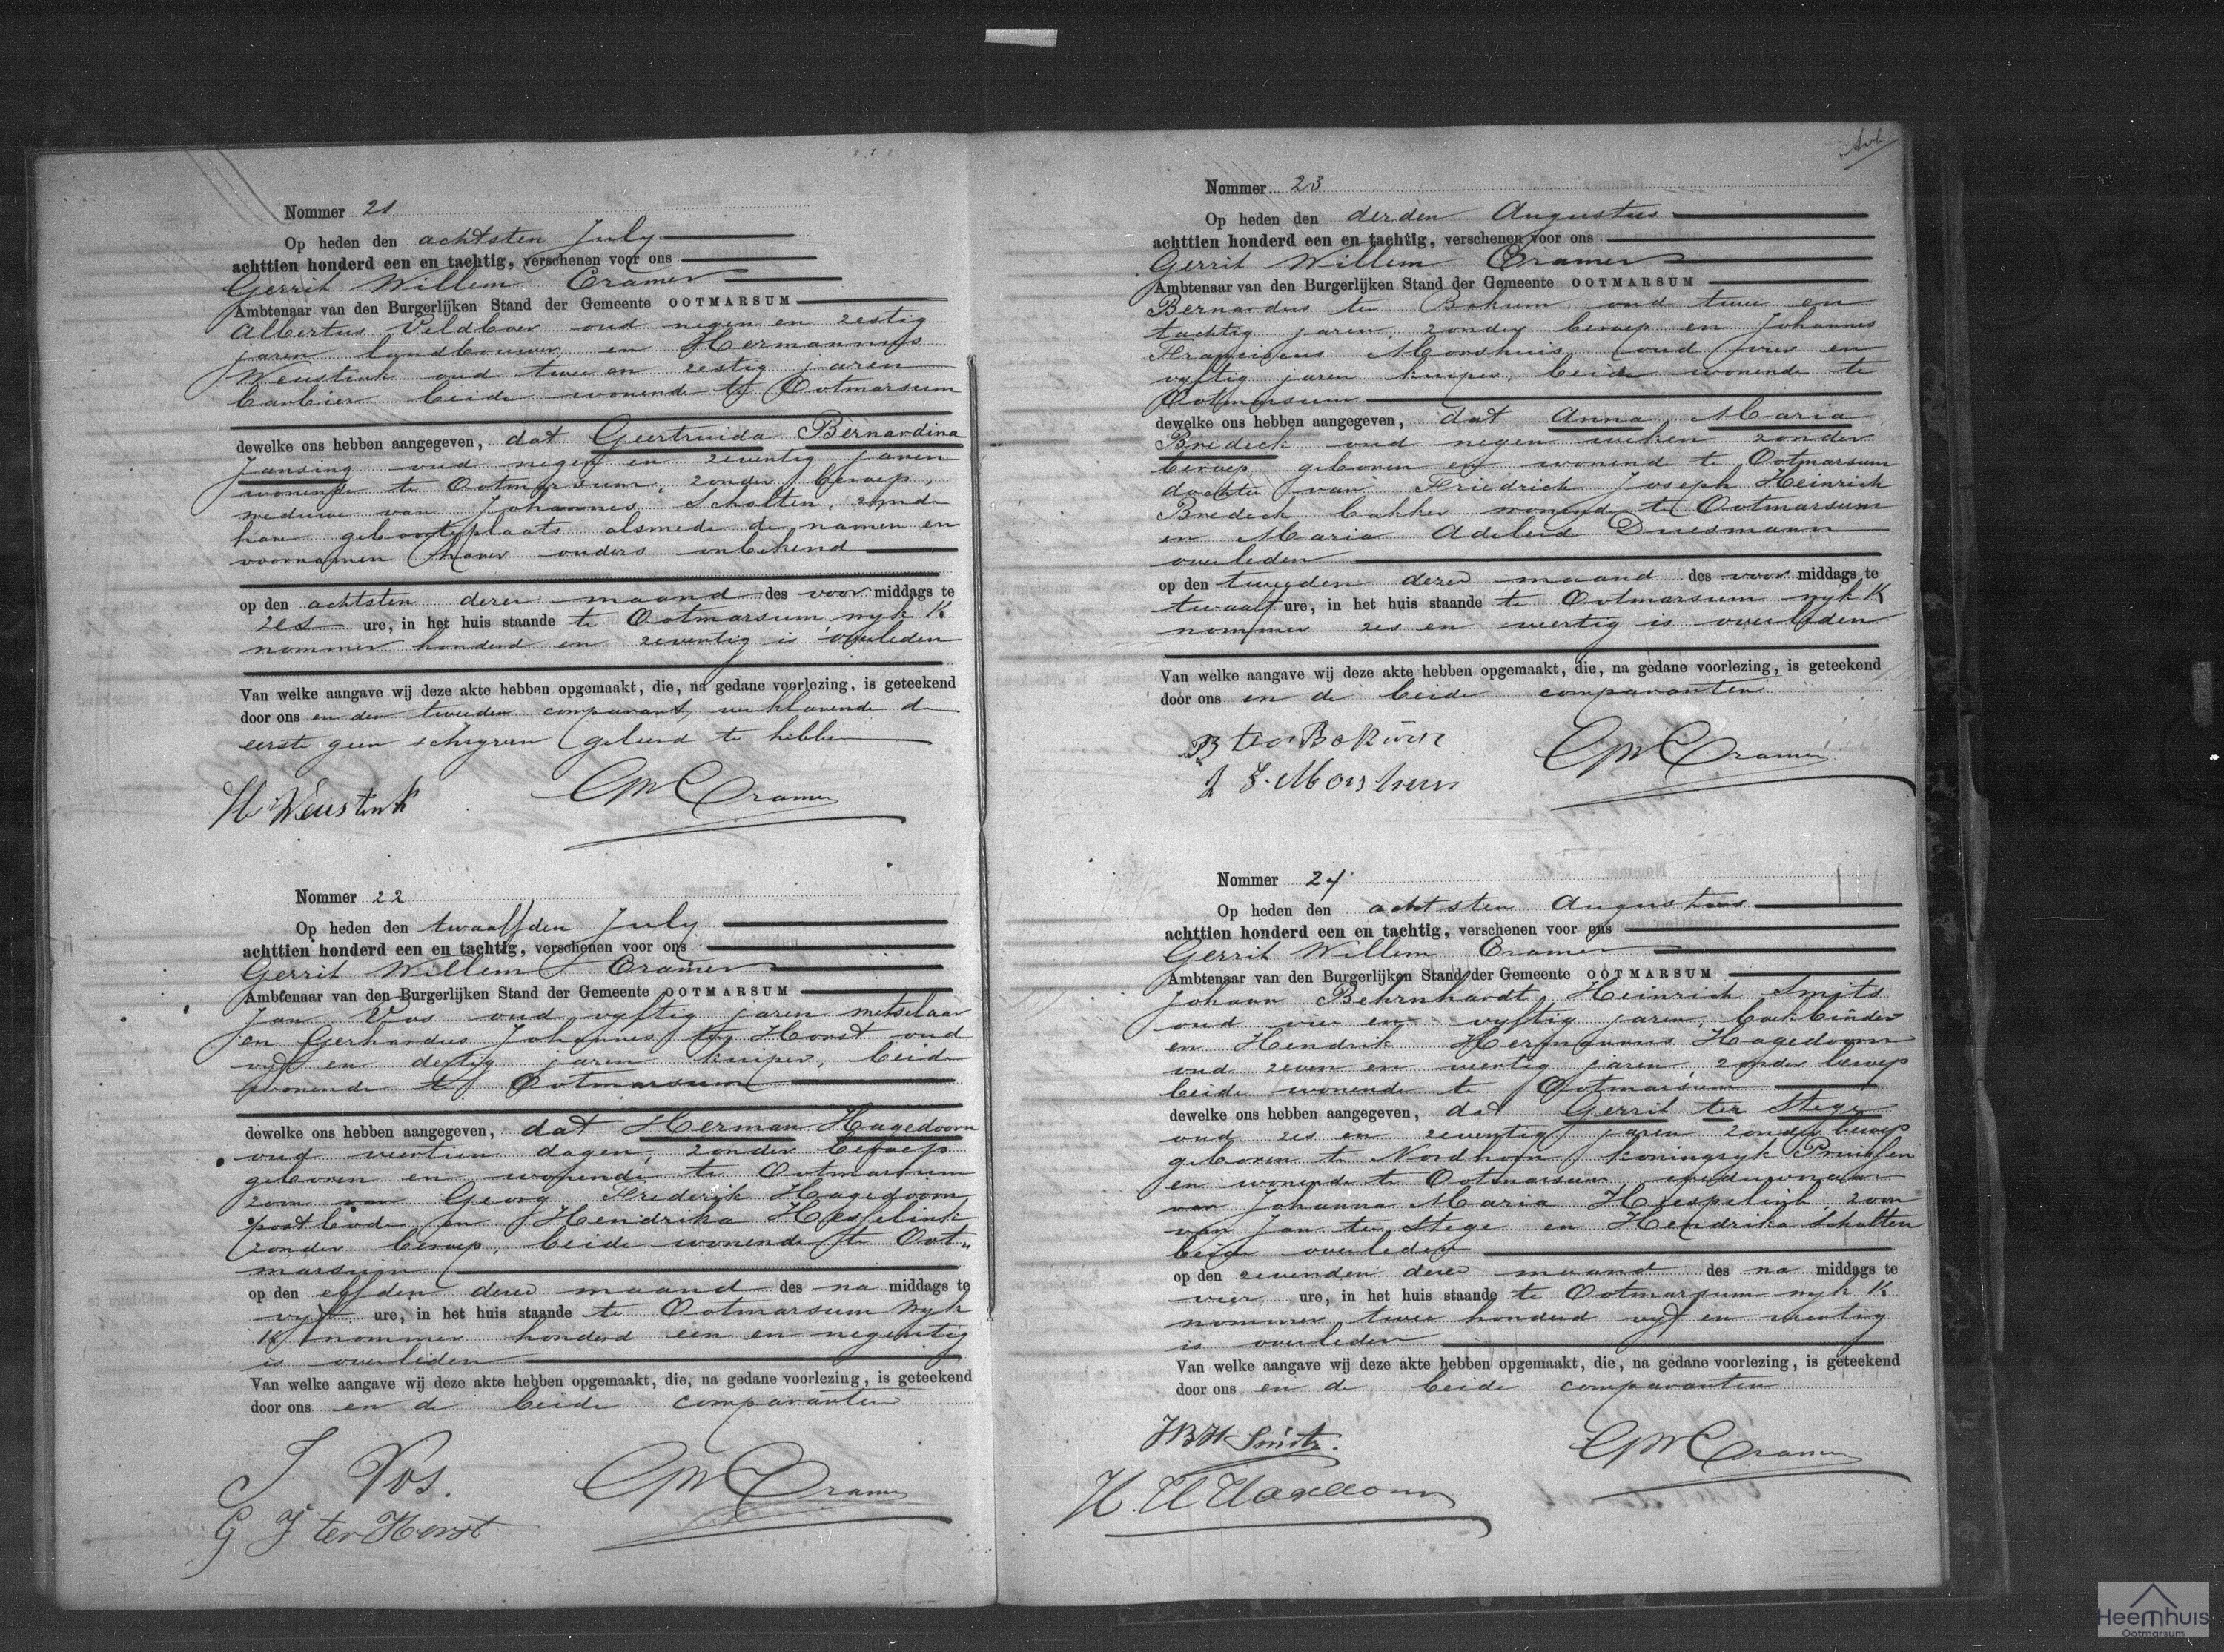 Nommer 21
Op heden den achtsten July
achttien honderd een en tachtig, verschenen voor ons
Gerrit Willem Cramer
Ambtenaar van den Burgerlijken Stand der Gemeente OOTMARSUM
Albertus Veldboer oud negen en zestig
jaren landbouwer en Hermannus
Weustink oud twee en zestig jaren
barbier beide wonende te Ootmarsum
dewelke ons hebben aangegeven, dat Geertruida Bernardina
Jansing oud negen en zeventig jaren
wonende te Ootmarsum, zonder beroep,
weduwe van Johannes Scholten, zynde
hare geboorteplaats alsmede de namen en
voornamen harer ouders onbekend
op den achtsten dezer maand des voor middags te
zes ure, in het huis staande te Ootmarsum wyk K
nommer honderd en zeventig is overleden
Van welke aangave wij deze akte hebben opgemaakt, die, na gedane voorlezing, is geteekend
door ons en den tweeden comparant, verklarende de
eerste geen schryven geleerd te hebben
H Weustink GW Cramer
Nommer 22
Op heden den twaalfden July
achttien honderd een en tachtig, verschenen voor ons
Gerrit Willem Cramer
Ambtenaar van den Burgerlijken Stand der Gemeente OOTMARSUM
Jan Vos oud vyftig jaren metselaar
en Gerhardus Johannes ter Horst oud
vyf en dertig jaren kuiper, beide
wonende te Ootmarsum
dewelke ons hebben aangegeven, dat Herman Hagedoorn
oud veertien dagen, zonder beroep
geboren en wonende te Ootmarsum
zoon van Georg Frederik Hagedoorn
postbode en Hendrika Hesselink
zonder beroep, beide wonende te Oot„
marsum
op den elfden dezer maand des na middags te
vyf ure, in het huis staande te Ootmarsum wyk
K nommer honderd een en negentig
is overleden
Van welke aangave wij deze akte hebben opgemaakt, die, na gedane voorlezing, is geteekend
door ons en de beide comparanten
J Vos. GW Cramer
G J ter Horst
Nommer 23
Op heden den derden Augustus
achttien honderd een en tachtig, verschenen voor ons
Gerrit Willem Cramer
Ambtenaar van den Burgerlijken Stand der Gemeente OOTMARSUM
Bernardus ter Bokum oud twee en
tachtig jaren, zonder beroep en Johannes
Franciscus Morshuis oud vier en
vyftig jaren kuiper, beide wonende te
Ootmarsum
dewelke ons hebben aangegeven, dat Anna Maria
Bredeck oud negen weken zonder
beroep geboren en wonende te Ootmarsum
dochter van Friedrich Joseph Heinrich
Bredeck bakker wonende te Ootmarsum
en Maria Adeleid Duesmann
overleden
op den tweeden dezer maand des voor middags te
twaalf ure, in het huis staande te Ootmarsum wyk K
nommer zes en veertig is overleden
Van welke aangave wij deze akte hebben opgemaakt, die, na gedane voorlezing, is geteekend
door ons en de beide comparanten
B ter Bokum GW Cramer
J F. Morshuis
Nommer 24
Op heden den achtsten Augustus
achttien honderd een en tachtig, verschenen voor ons
Gerrit Willem Cramer
Ambtenaar van den Burgerlijken Stand der Gemeente OOTMARSUM
Johann Behrnhardt Heinrich Smits
oud vier en vyftig jaren, boekbinder
en Hendrik Hermannus Hagedoorn
oud zeven en veertig jaren, zonder beroep
beide wonende te Ootmarsum
dewelke ons hebben aangegeven, dat Gerrit ter Stege
oud zes en zeventig jaren zonder beroep
geboren te Nordhorn koningryk Pruissen
en wonende te Ootmarsum weduwenaar
van Johanna Maria Hespelink, zoon
van Jan ter Stege en Hendrika Scholten
beide overleden
op den zevenden dezer maand des na middags te
vier ure, in het huis staande te Ootmarsum wyk K
nommer twee honderd vyf en veertig
is overleden
Van welke aangave wij deze akte hebben opgemaakt, die, na gedane voorlezing, is geteekend
door ons en de beide comparanten
JBH Smits. GW Cramer
H. H Hagedoorn
Heemhuis
Ootmarsum